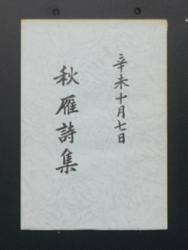 辛未十月七日
秋雁詩集